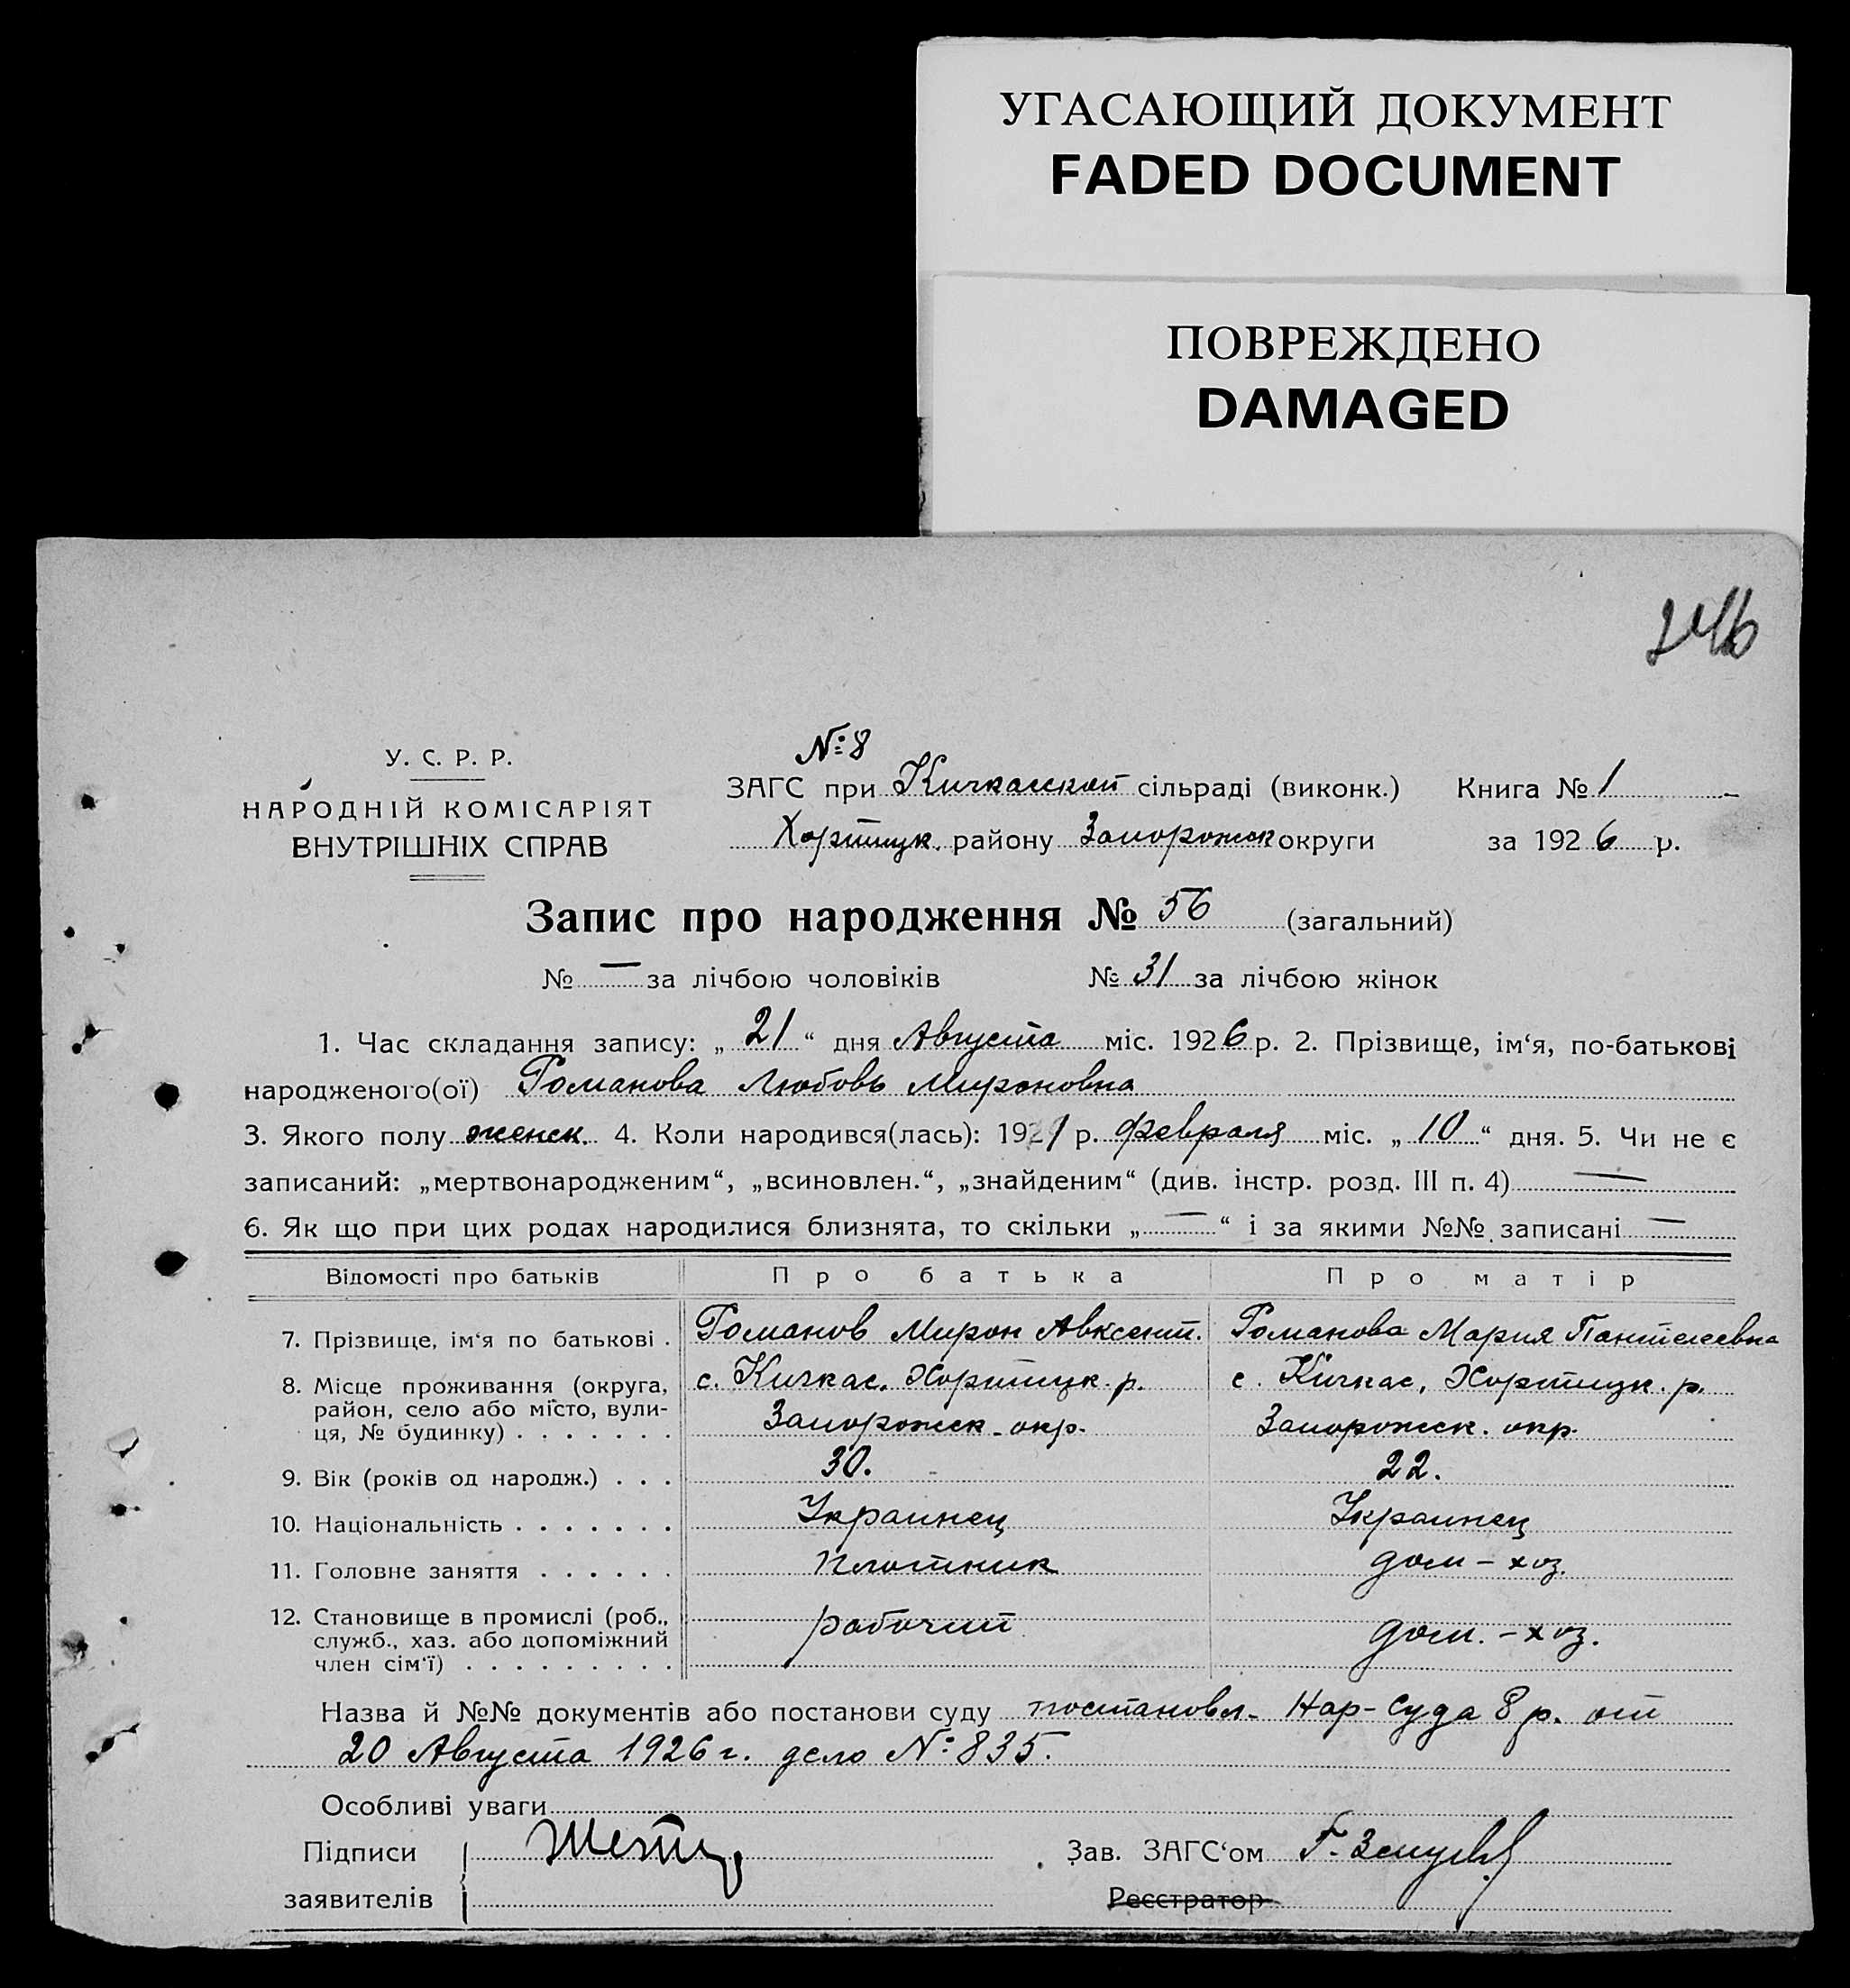 УГАСАЮЩИЙ ДОКУМЕНТ
FADED DOCUMENT
ПОВРЕЖДЕНО
DAMAGED
246
У. С. Р. Р.
НАРОДНІЙ КОМІСАРІЯТ
ВНУТРІШНІХ СПРАВ
№ 8
ЗАГС при Кичкасской сільраді (виконк.) Книга № 1
Хортицк. району Запорожск округи за 1926 р.
Запис про народження № 56 (загальний)
№ — за лічбою чоловіків № 31 за лічбою жінок
1. Час складання запису: „ 21 “ дня Августа міс. 1926 р. 2. Прізвище, ім‘я, по-батькові
народженого(ої) Романова Любовь Мироновна
3. Якого полу женск. 4. Коли народився(лась): 1921 р. февраля міс. „ 10 “ дня. 5. Чи не є
записаний: „мертвонародженим“, „всиновлен.“, „знайденим“ (див. інстр. розд. III п. 4) —
6. Як що при цих родах народилися близнята, то скільки „ — “ і за якими №№ записані —
Відомості про батьків Про батька Про матір
7. Прізвище, ім‘я по батькові . Романов Мирон Авксент. Романова Мария Пантелеевна
8. Місце проживання (округа, с. Кичкас, Хортицк. р. с. Кичкас, Хортицк. р.
район, село або місто, вули-
ця, № будинку) . . . . . . . Запорожск. окр. Запорожск. окр.
9. Вік (років од народж.) . . . 30. 22.
10. Національність . . . . . . . Украинец Украинец
11. Головне заняття . . . . . . плотник дом-хоз.
12. Становище в промислі (роб., рабочий дом.-хоз.
служб., хаз. або допоміжний
член сім‘ї) . . . . . . . . .
Назва й №№ документів або постанови суду постановл. Нар-Суда 8 р. от
20 Августа 1926 г. дело № 835.
Особливі уваги
Підписи Зав. ЗАГС‘ом
заявителів Реєстратор